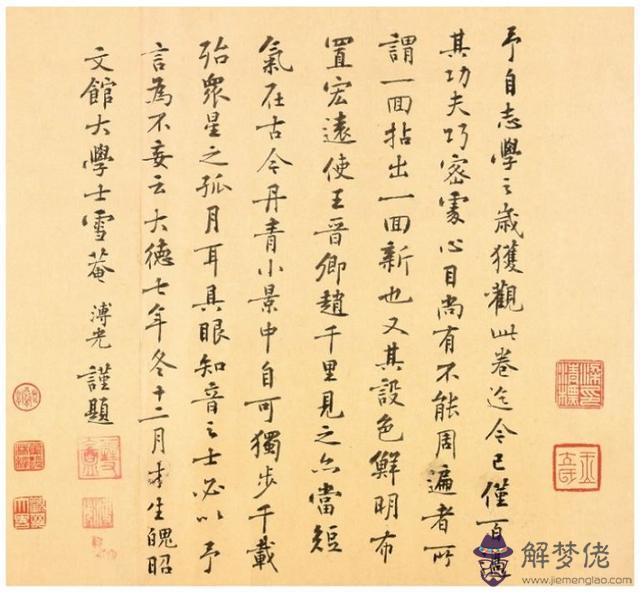 予自志學之歲獲觀此卷迄今已僅百過
其功夫巧密處心目尚有不能周遍者所
謂一面拈出一面新也又其設色鮮明布
置宏遠使王晉卿趙千里見之亦當短
氣在古今丹青小景中自可獨步千載
殆衆星之孤月耳具眼知音之士必以予
言為不妄云大德七年冬十二月才生魄昭
文館大學士雪菴溥光謹題
解梦佬
www.jiemenglao.com